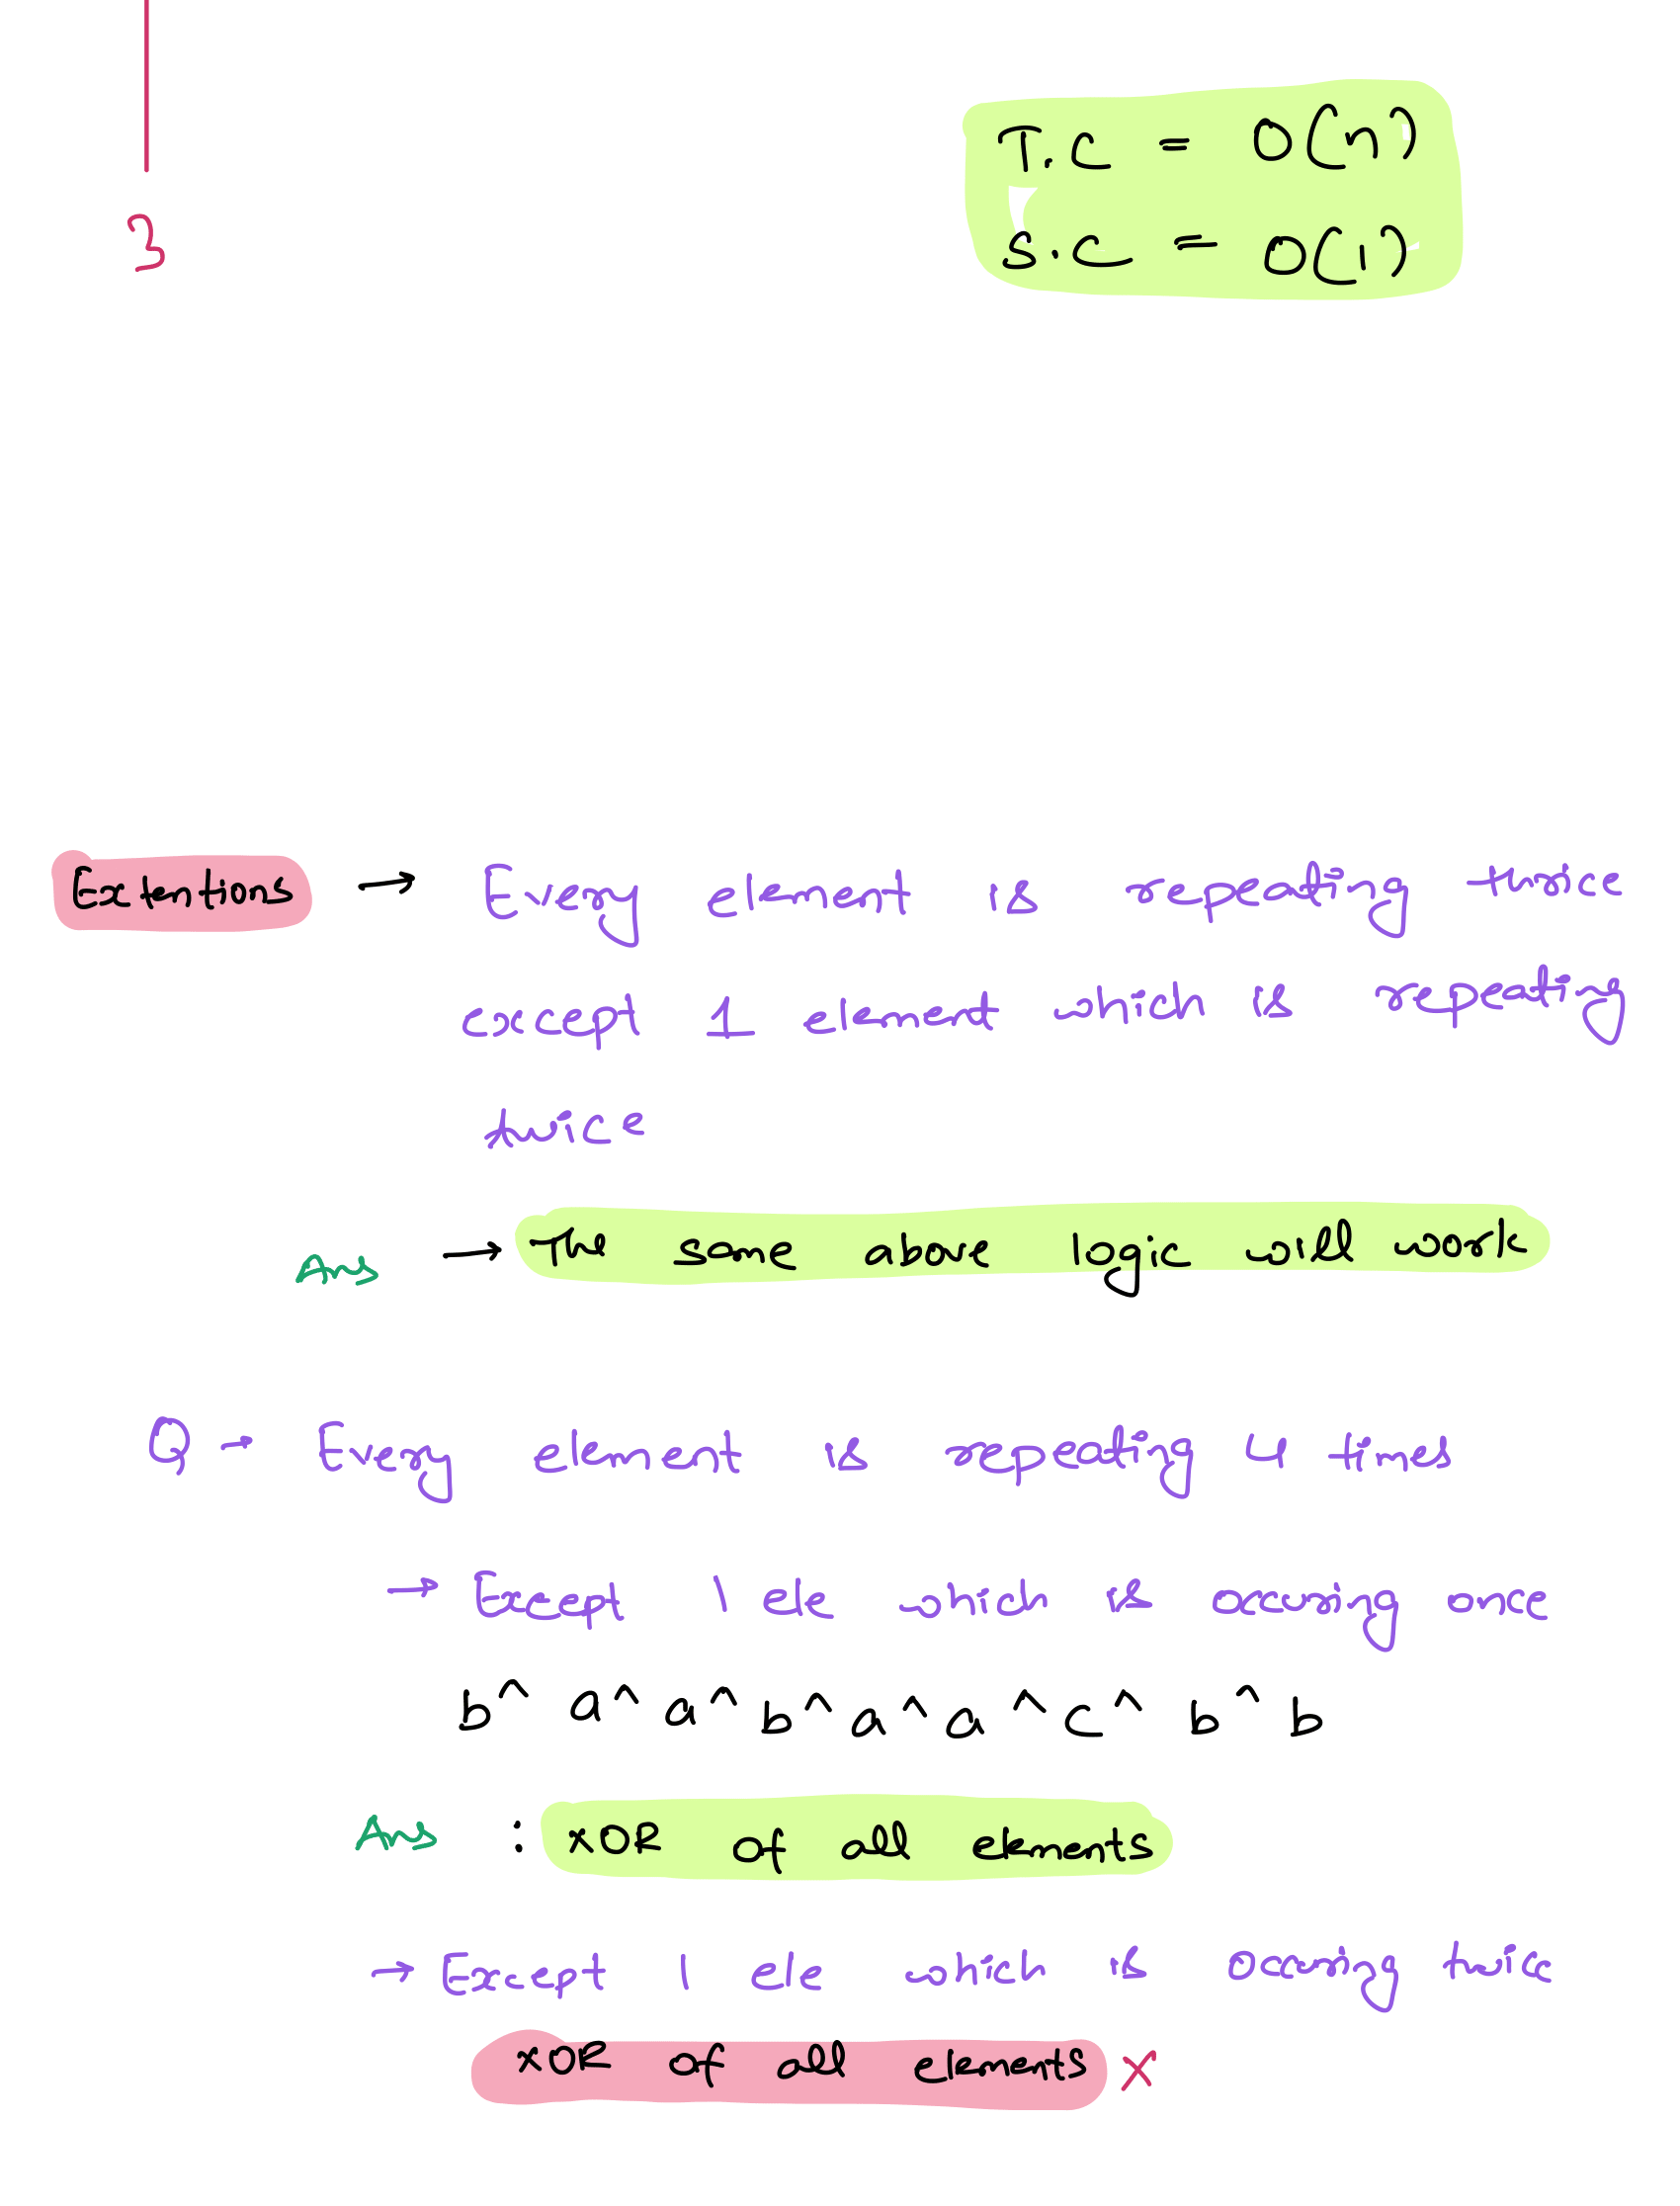 T.C = O(n)
}
S.C = O(1)
Extentions → Every element is repeating thrice
except 1 element which is repeating
twice
Ans → The same above logic will work
Q → Every element is repeating 4 times
→ Except 1 ele which is occuring once
b ^ a ^ a ^ b ^ a ^ a ^ c ^ b ^ b
Ans : XOR of all elements
→ Except 1 ele which is occuring twice
XOR of all elements X